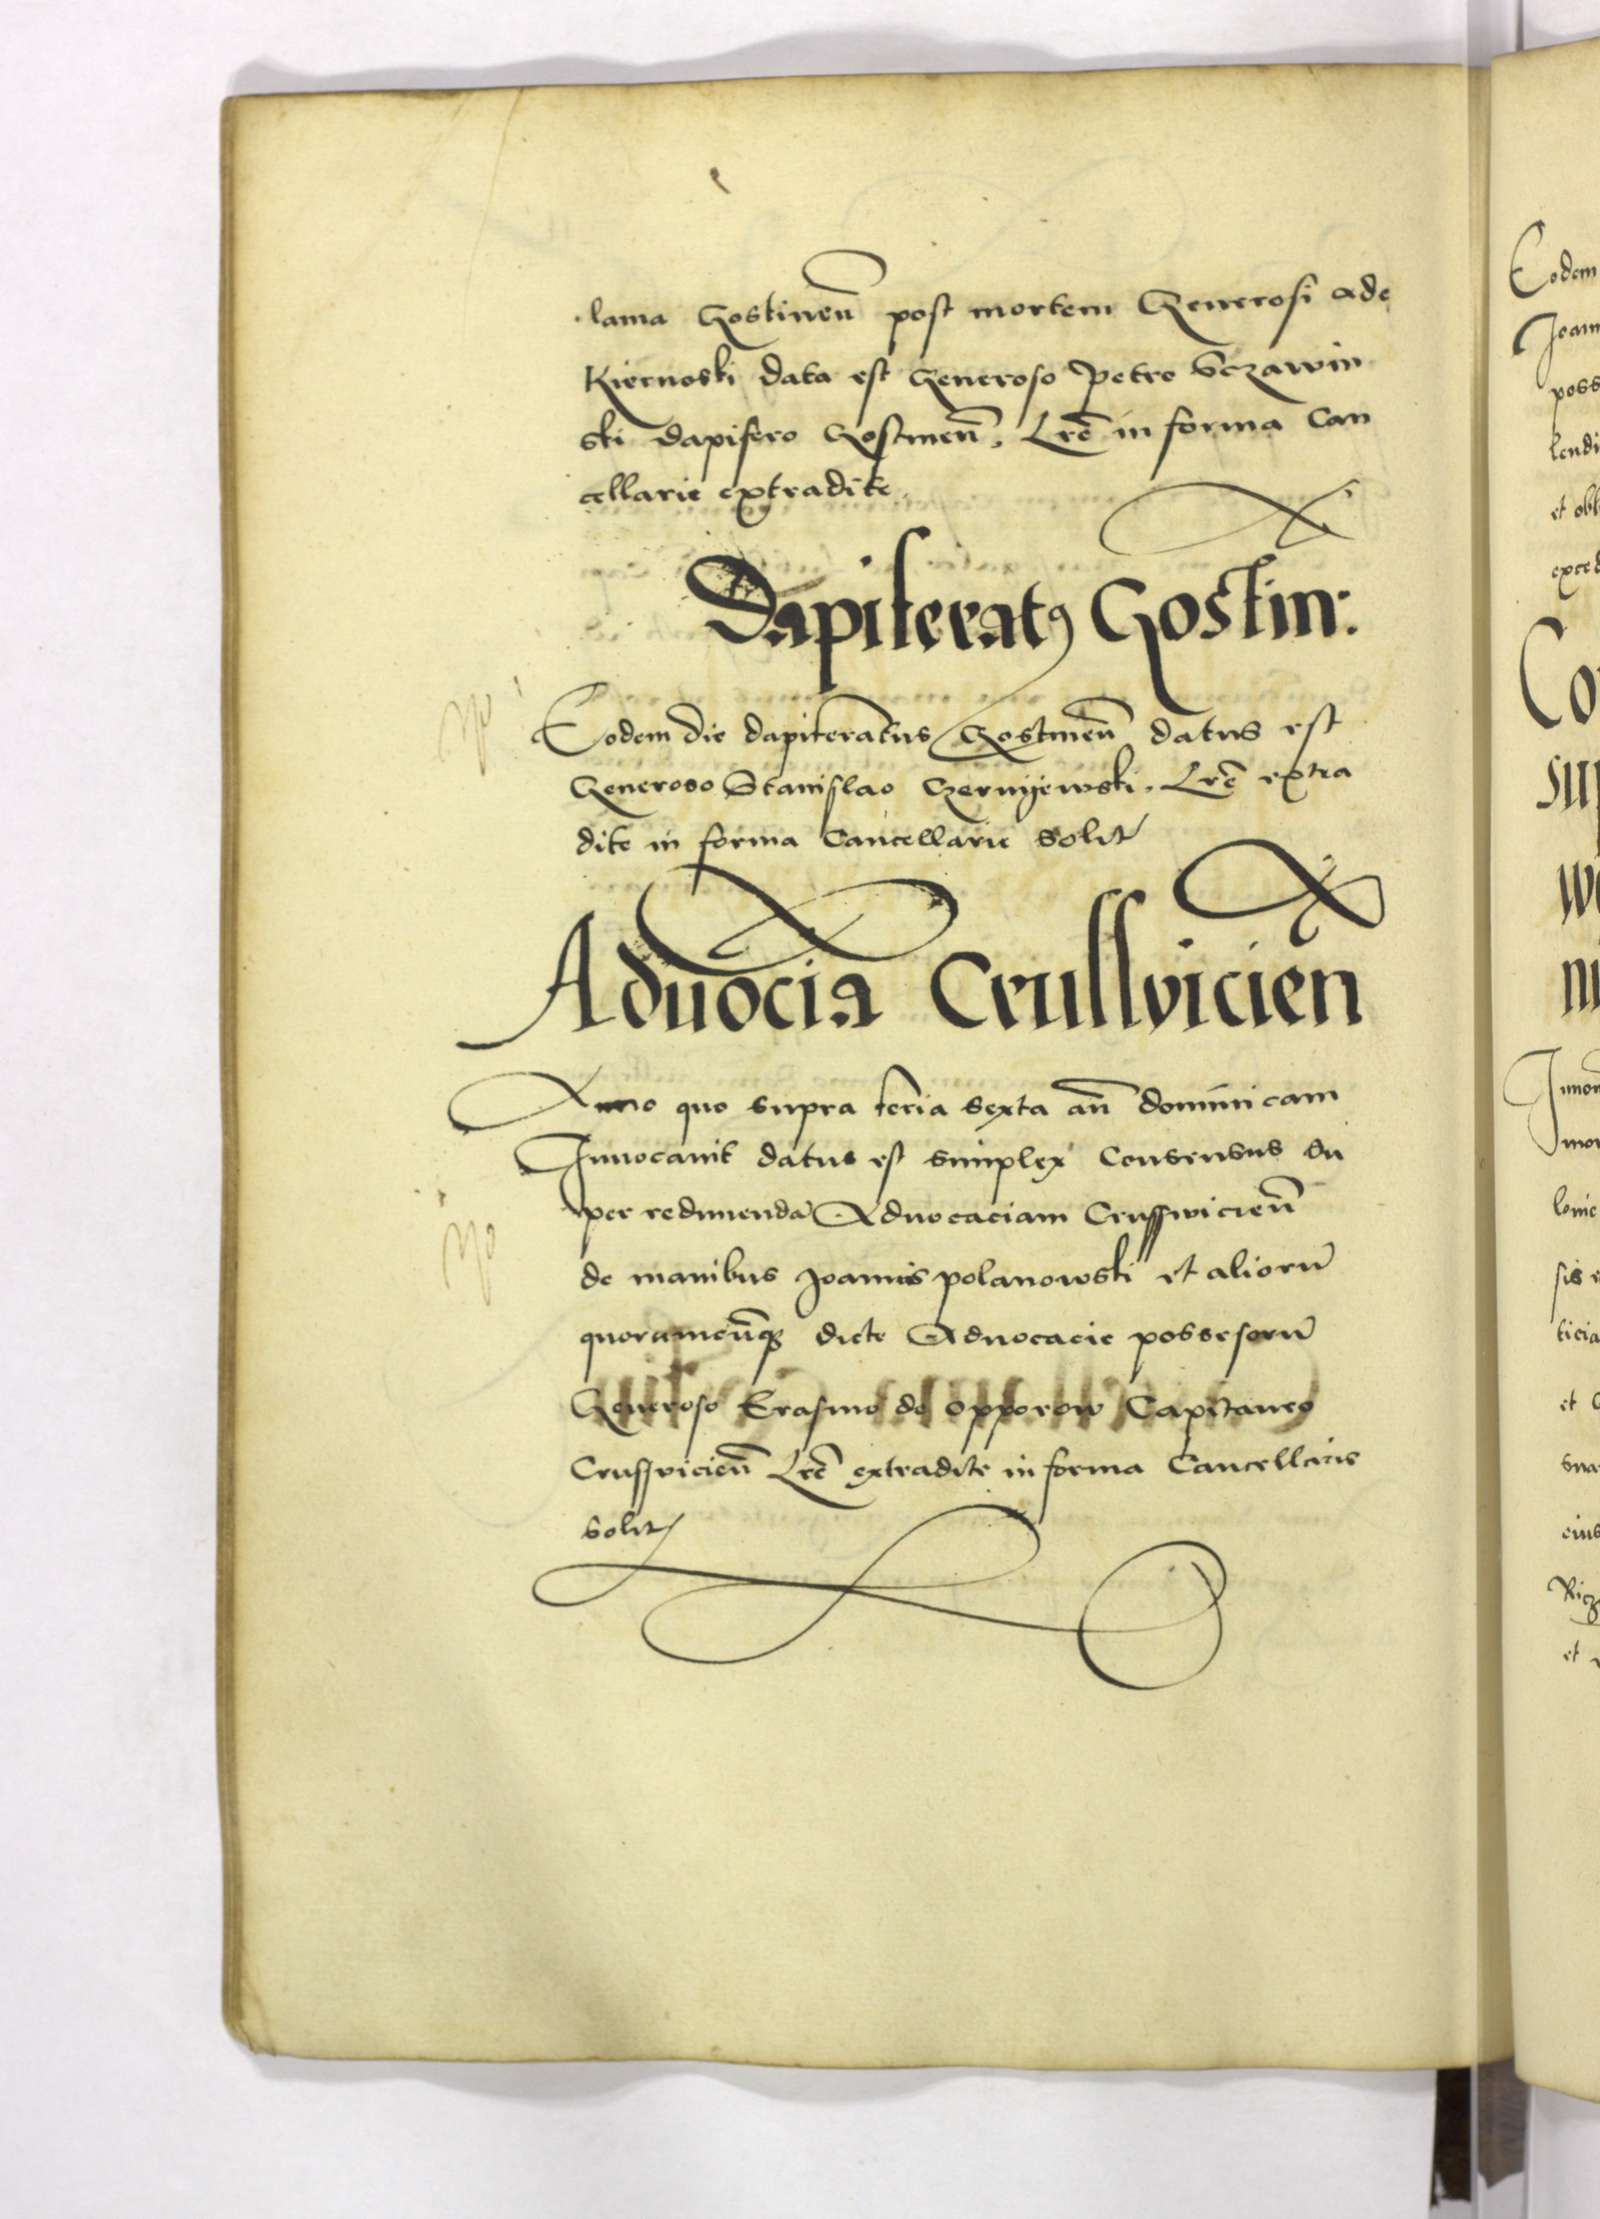 lama Gostinen̄ post mortem Generosi a de
Kiernoski data est Generoso Petro Sczawin
ski dapifero Gostinen̄. Lr̄e in forma Can
cellarie extradite.
Dapiferatꝰ Gostin:
Eodem die dapiferatus Gostinen̄ datus est
Generoso Stanislao Czernyewski. Lr̄e extra
dite in forma Cancellarie solit
Aduocia Crusswicien
Anno quo supra feria sexta an̄ dominicam
Inuocauit datus est simplex Consensus su
per redimendā Aduocaciam Crusswicien̄
de manibus Joannis polanowski et aliorū
quorumcūqꝫ dicte Aduocacie possessorū
Generoso Erasmo de Opporow Capitaneo
Crusswicien̄ Lr̄e extradite in forma Cancellarie
solit
Eodem
Joann
poss
lendi
et obl
exced
Co
sup
wo
ni
mor
lonie
sis e
ticia
et
eius
et